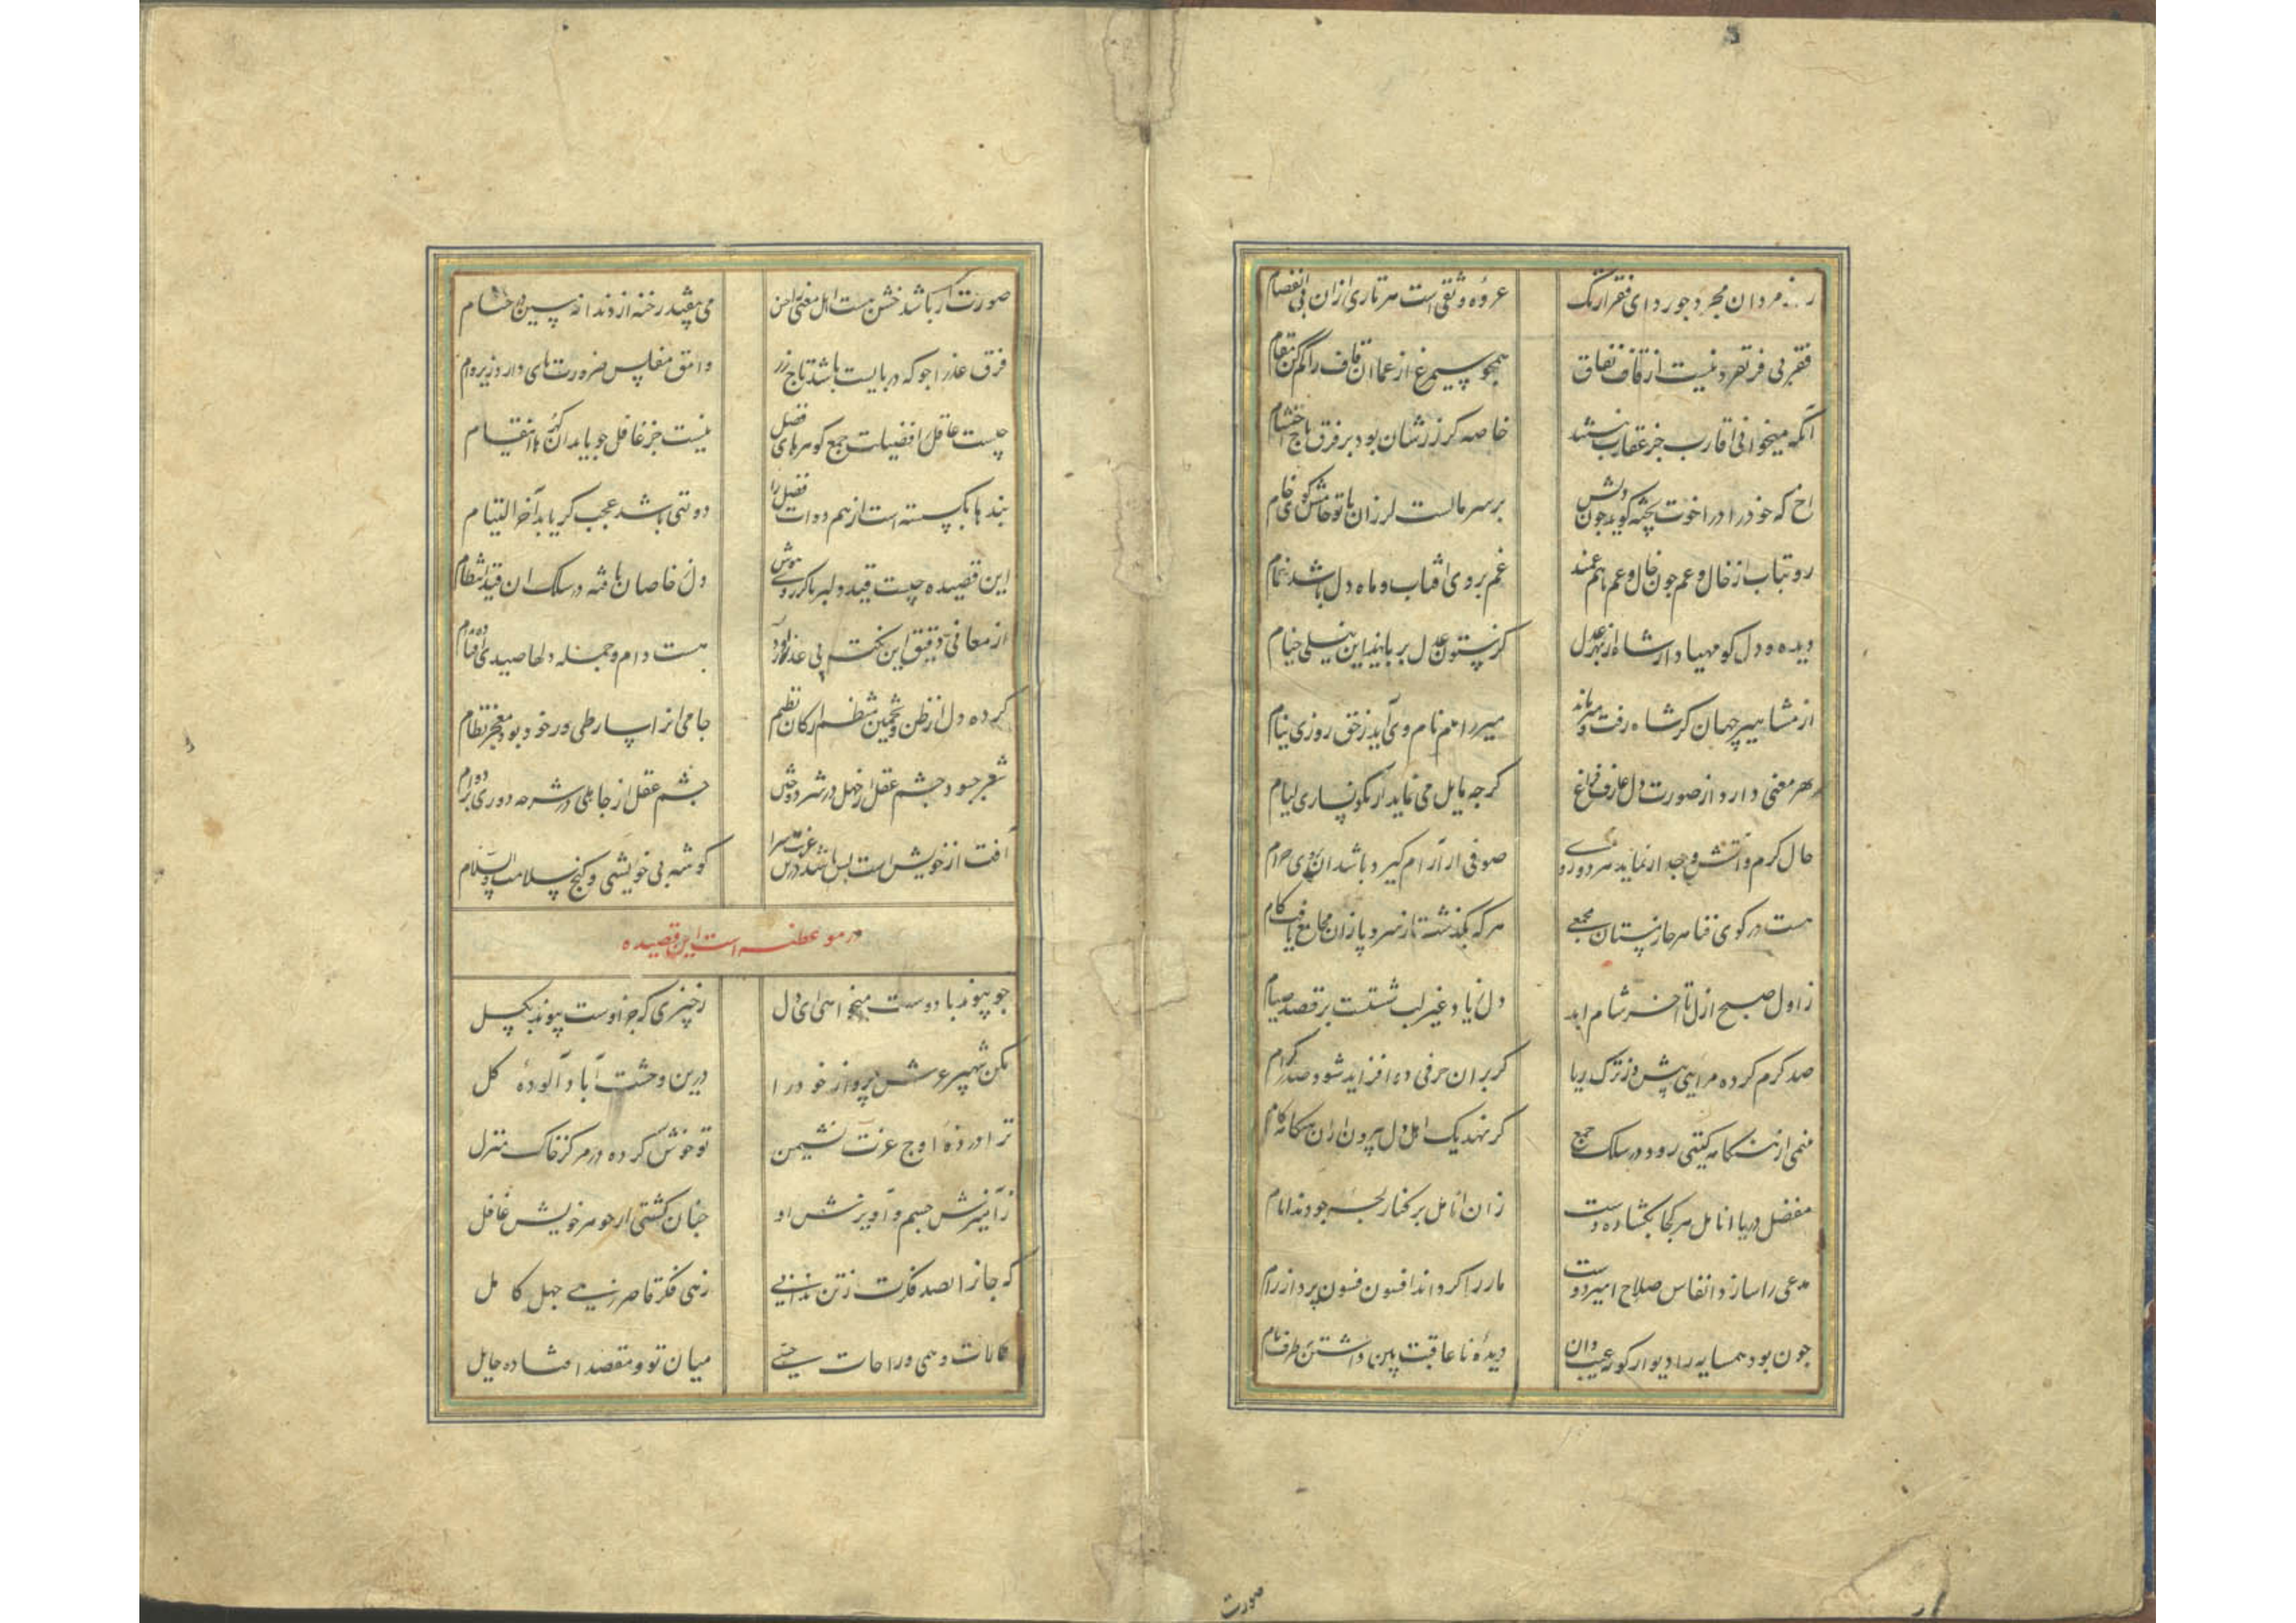 مردان مجرد جو ردای فقر ازنک عروه وثقی است هر تاری ازان بی انفصام
فقر بی فر تفرد نیست از قاف نفاق همچو سیمرغ از عما ان قاف را کم کن مقام
آنکه میخوانی اقارب جز عقارب نیستند خاصه کز زرشان بود بر فرق تاج احتشام
اخ که خود را در اخوت پخته کوید جون بر سر مالست لرزان با تو خامش کوی خام
رو بتاب از خال و عم جون خال و عم هم عمند غم بروی افتاب و ماه دل باشد غمام
دیده و دل کو مهیا دار شاه از بهر عدل کز ستون عدل بر پایند این نیلی خیام
از مشاهیر جهان کر شاه رفت و میر ماند میر را هم نام وی آید ز حق روزی بنام
هر معنی دارد از صورت دل عارف فراغ کرجه مایل می نماید از نکونساری لیام
حال کرم و آتش وجد ار نماید هر دو رو صوفی ار آرام کیرد باشد ان بروی حرام
هست در کوی فنا هر جا ز پستان مجمعی هر که بکذشت از سر و پا زان مجامع یافت کام
ز اول صبح ازل تا آخر شام ابد دل ز یاد غیر لب شستست بر قصد صیام
صد کرم کرده مرایی پیش و ز ترک ریا کر بران حرفی ده افزاید شود صد کرام
منمی از هنکامه کیتی رود در سلک جمع کر نهد یک اهل دل بیرون ازان هنکامه کام
مفضل دریا انامل هر کجا بکشاده دست زان انامل بر کنار لجه جودند انام
مدعی را سازد انفاس صلاح امیز دوست مار را کرداند افسون فسون پرداز رام
جون بود همسایه را دیوار کور عیب دان دیده نا عاقبت بین داشتن بر طرف بام
صورت
صورت ار باشد خشن هست اهل معنی را حسن می فتد رخنه از دندانه سین در حسام
فرق عذرا جو که دربایست باشد تاج زر وامق مفلس ضرورتهای دارد زیر وام
چیست عاقل را فضیلت جمع کوهرهای فضل نیست جز غافل جو یابد ان کهرها انقسام
بندها بکسسته است از هم دوات فضل را دولتی باشد عجب کر یابد آخر التیام
این قصیده چیست قید دلبر باکر روی هوش دل خاصان یافته در سلک ان قید انتظام
از معانی دقیق این نکت بی عد هست دام و جمله دلها صید ای
کرده دل از ظن و تخمین منظم ارکان نظم جامی انرا پسار طی ور خود بود معجز نظام
شعر جبود جشم عقل از جهل در شر دوختن جشم عقل از جاهلی در شرحه دوری
آفت از خویش است بس باشد درین غربت سرا کوشه بی خویشی و کنج سلامت والسلام
در موعظه است این قصیده
جو پیوند با دوست میخواهی ای دل ز چیزی که جز اوست پیوند بکسل
مکن شهپر عرش پرواز خود را درین وحشت آباد آلوده کل
ترا در ذره اوج عزت نشیمن تو خوش کرده در مرکز خاک منزل
ز آمیزش جسم و آویزش او جنان کشتی از جوهر خویش غافل
که جانرا بصد فکرت از تن ندانی زهی فکر قاصر زهی جهل کامل
وهمی و راحات حسی میان تو و مقصد افتاده حایل